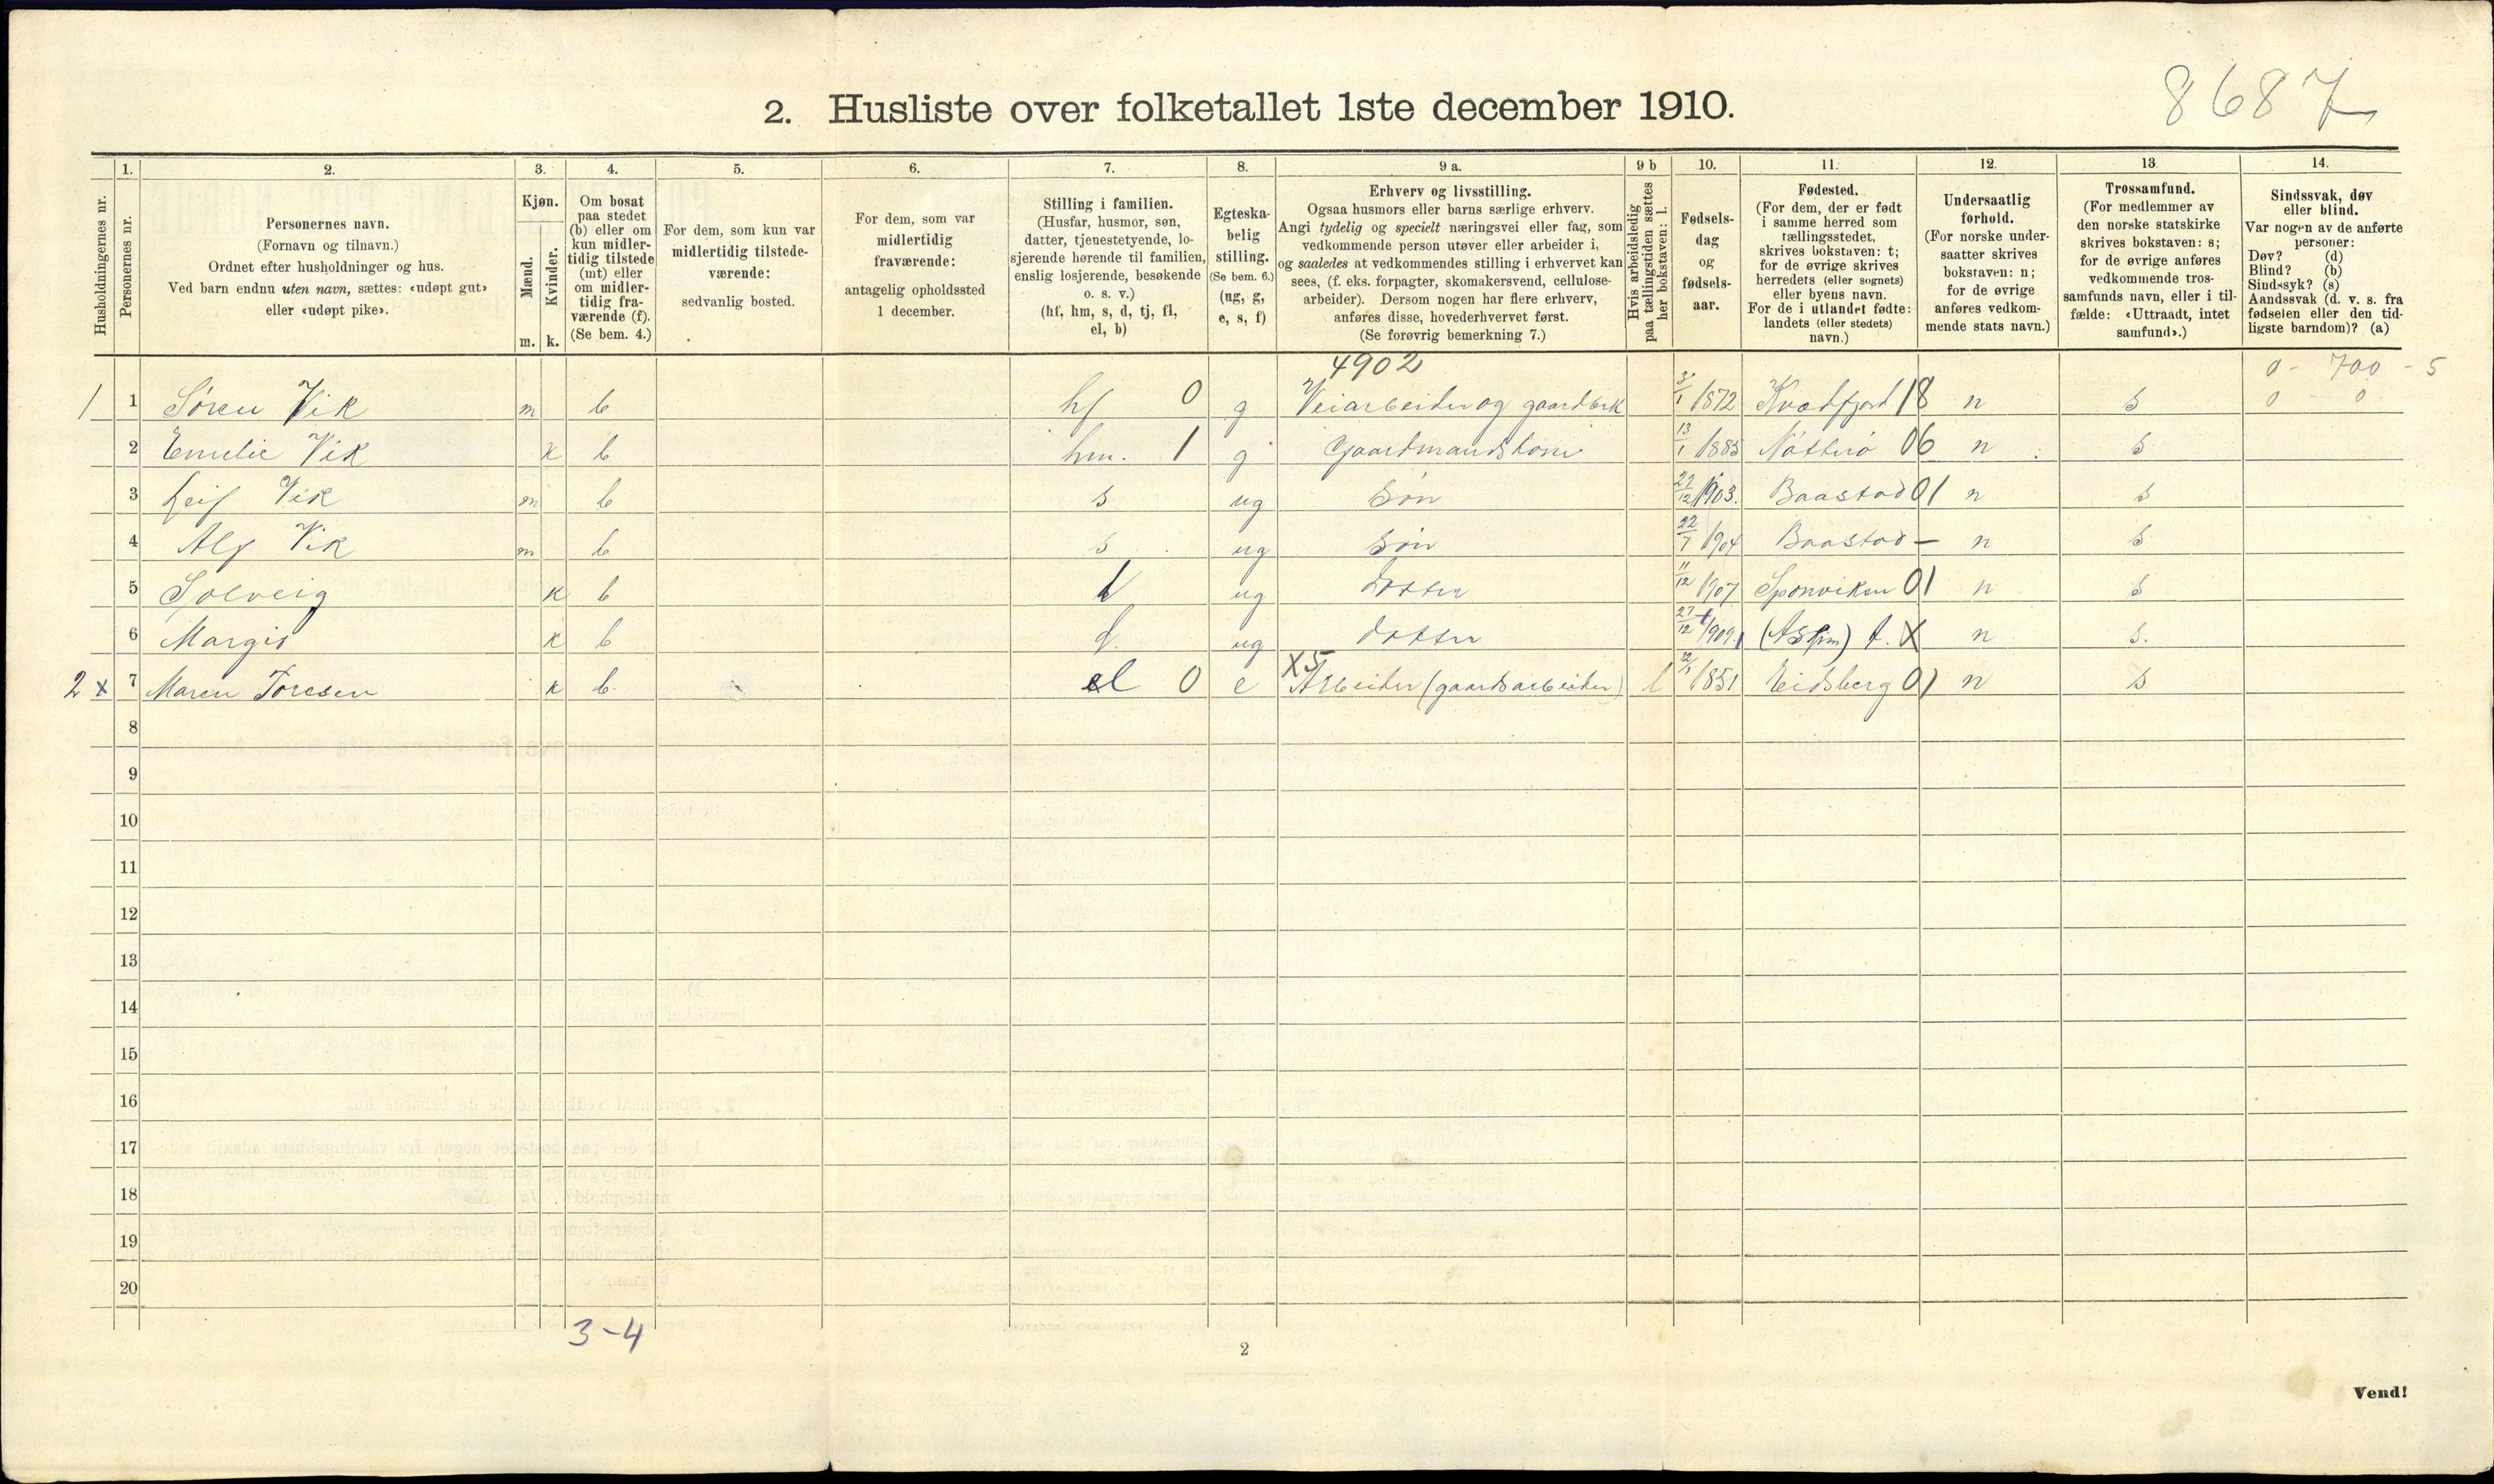 8687
2. Husliste over folketallet 1ste december 1910.
Husholdningernes nr.
1.
Personernes nr.
2.
Personernes navn.
(Fornavn og tilnavn.)
Ordnet efter husholdninger og hus.
Ved barn endnu uten navn, sættes: «udøpt gut»
eller «udøpt pike».
3.
Kjøn.
Mænd.
Kvinder.
m. k.
4.
Om bosat
paa stedet
(b) eller om
kun midler-
tidig tilstede
(mt) eller
om midler-
tidig fra-
værende (f).
(Se bem. 4.)
5.
For dem, som kun var
midlertidig tilstede-
værende:
sedvanlig bosted.
6.
For dem, som var
midlertidig
fraværende:
antagelig opholdssted
1 december.
7.
Stilling i familien.
(Husfar, husmor, søn,
datter, tjenestetyende, lo-
sjerende hørende til familien,
enslig losjerende, besøkende
o. s. v.)
(hf, hm, s, d, tj, fl,
el, b)
8.
Egteska-
belig
stilling.
(Se bem. 6.)
(ug, g,
e, s, f)
9 a.
Erhverv og livsstilling.
Ogsaa husmors eller barns særlige erhverv.
Angi tydelig og specielt næringsvei eller fag, som
vedkommende person utøver eller arbeider i,
og saaledes at vedkommendes stilling i erhvervet kan
sees, (f. eks. forpagter, skomakersvend, cellulose-
arbeider). Dersom nogen har flere erhverv,
anføres disse, hovederhvervet først.
(Se forøvrig bemerkning 7.)
9 b
Hvis arbeidsledig
paa tællingstiden sættes
her bokstaven: l.
10.
Fødsels-
dag
og
fødsels-
aar.
11.
Fødested.
(For dem, der er født
i samme herred som
tællingsstedet,
skrives bokstaven: t;
for de øvrige skrives
herredets (eller sognets)
eller byens navn.
For de i utlandet fødte:
landets (eller stedets)
navn.)
12.
Undersaatlig
forhold.
(For norske under-
saatter skrives
bokstaven: n;
for de øvrige
anføres vedkom-
mende stats navn.)
13.
Trossamfund.
(For medlemmer av
den norske statskirke
skrives bokstaven: s;
for de øvrige anføres
vedkommende tros-
samfunds navn, eller i til-
fælde: «Uttraadt, intet
samfund».)
14.
Sindssvak, døv
eller blind.
Var nogen av de anførte
personer:
Døv? (d)
Blind? (b)
Sindssyk? (s)
Aandssvak (d. v. s. fra
fødselen eller den tid-
ligste barndom)? (a)
4902 0 - 700 - 5
1 1 Søren Vik m b hf 0 g Veiarbeider og gaardbrk 3/1 1872 Kvædfjord 18 n s 0 - 0
2 Emelie Vik k b hm. 1 g Gaardmandskone 13/1 1885 Nøtterø 06 n s
3 Leif Vik m b s ug Søn 29/12 1903. Baastad 01 n s
4 Alf Vik m b s ug Søn 22/7 1904 Baastad - n s
5 Solveig k b d ug Datter 11/12 1907 Sponviken 01 n s
6 Margit k b d. ug datter 27/12 1909. (Askim) t. X n s.
X5
2 x 7 Maren Toresen k b el 0 e Arbeider (gaardsarbeider) l 1851 Eidsberg 01 n s
8
9
10
11
12
13
14
15
16
17
18
19
20
3-4
2
Vend!